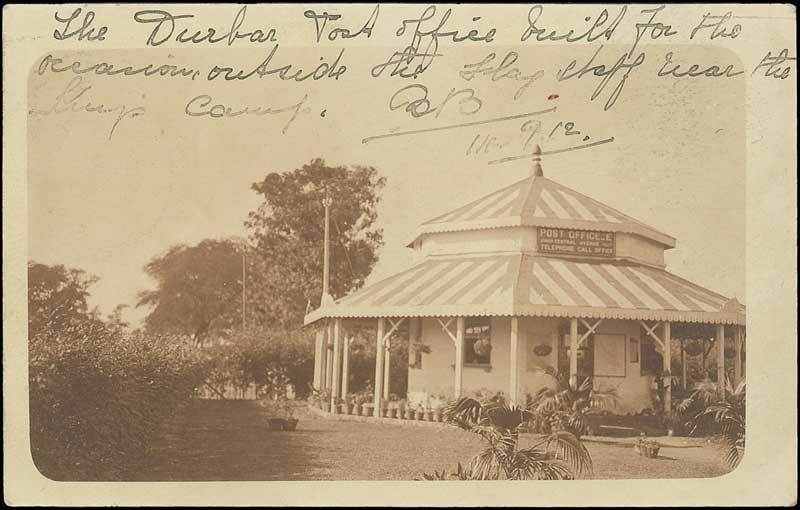 The Durbar Post office built for the
occasion, outside the Flag staff near the
King's Camp.
9.12.
POST OFFICE_E
CENTRAL AVENUE
TELEPHONE CALL OFFICE